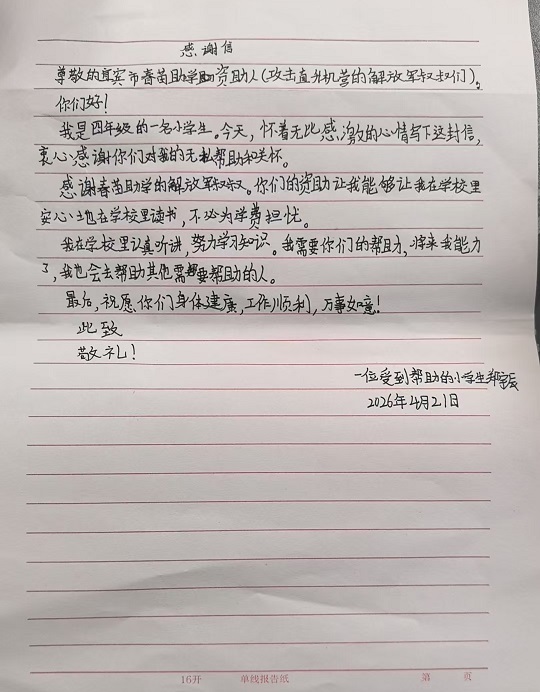 感谢信
尊敬的宜宾市春苗助学资助人(攻击直升机营的解放军叔叔们)。
你们好!
我是四年级的一名小学生。今天,怀着无比感激的心情写下这封信,
衷心感谢你们对我的无私帮助和关怀。
感谢春苗助学的解放军叔叔。你们的资助让我能够让我在学校里
安心地在学校里读书,不必为学费担忧。
我在学校里认真听讲,努力学习知识。我需要你们的帮助,将来我能力
了,我也会去帮助其他需要帮助的人。
最后,祝愿你们身体健康,工作顺利,万事如意!
此致
敬礼!
一位受到帮助的小学生郑
2026年4月21日
16开 单线报告纸 第 页